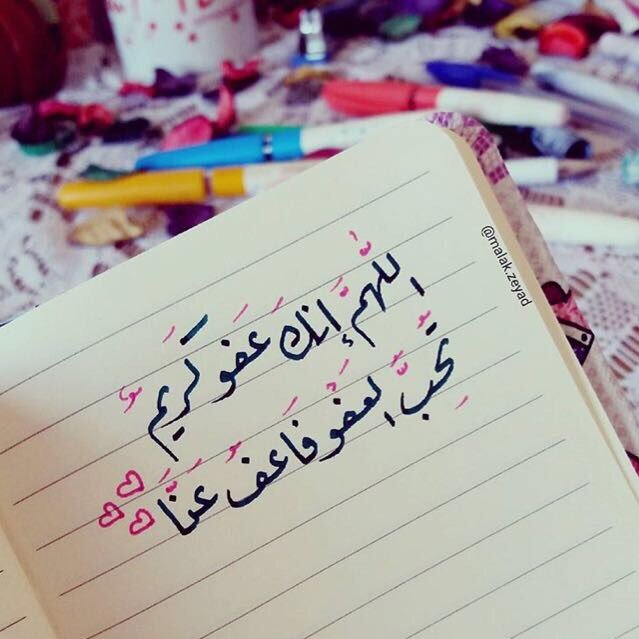 اللَّهُمَّ إنكَ عَفو كَريمٌ
تُحِبُّ العفْوَ فَاعفُ عَنَّا
@malak.zeyad